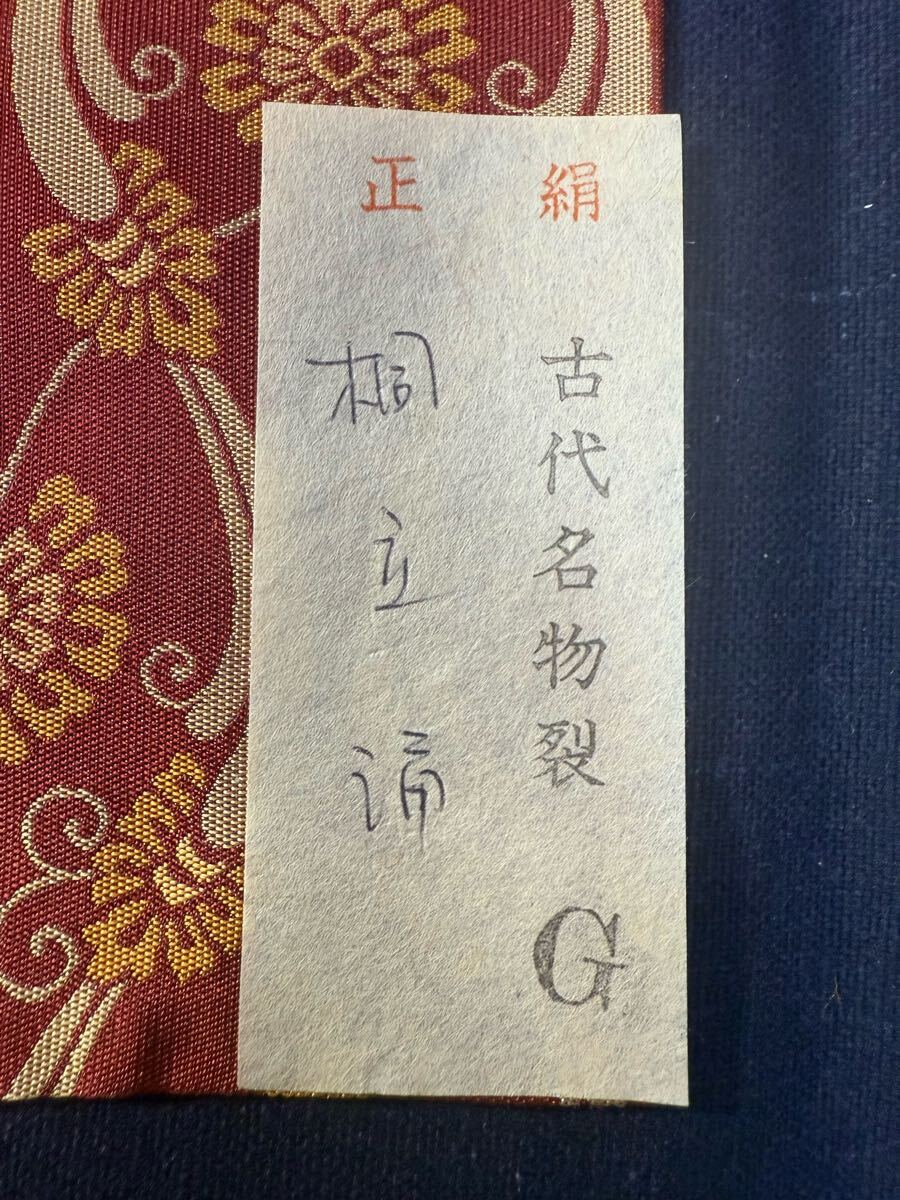 正絹
古代名物裂 G
桐立涌